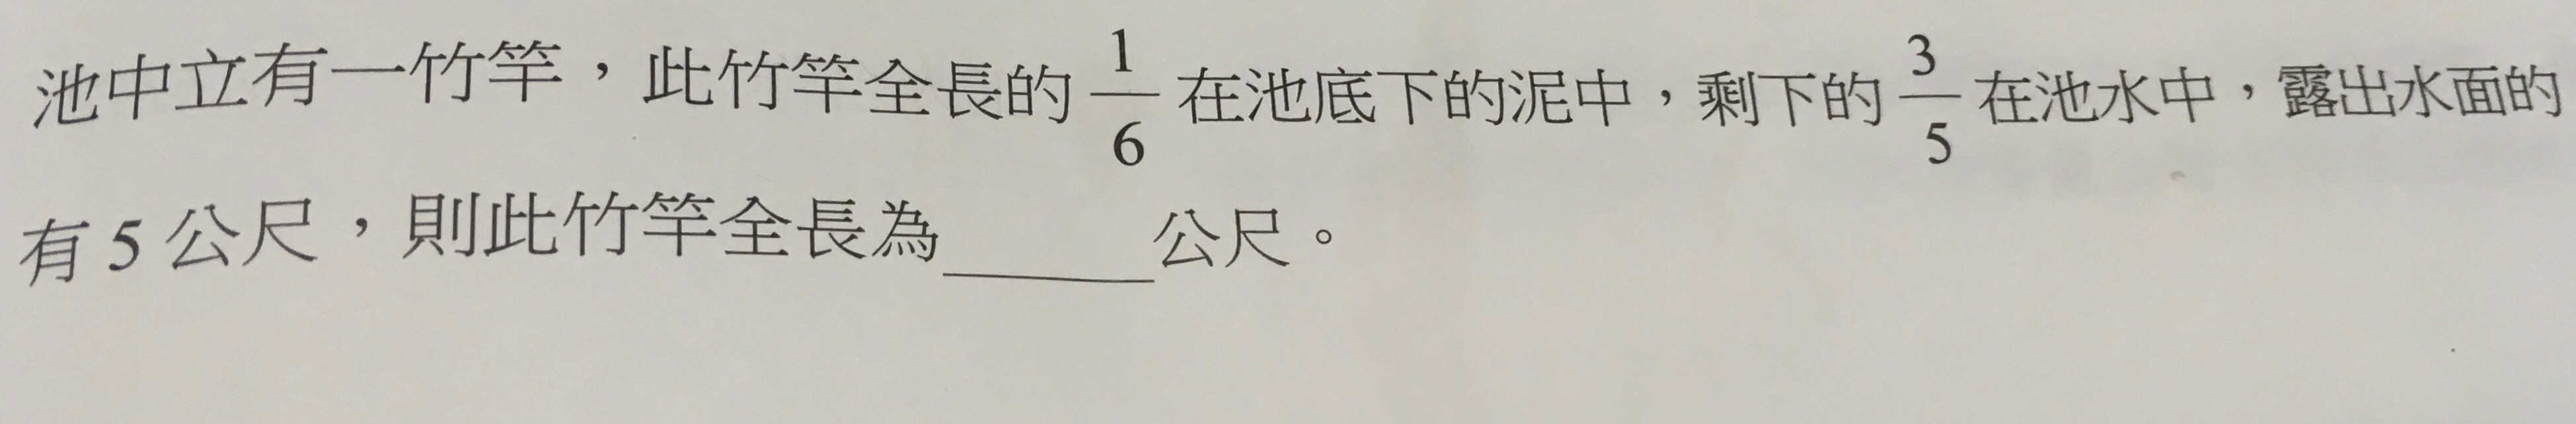 池中立有一竹竿，此竹竿全長的 1/6 在池底下的泥中，剩下的 3/5 在池水中，露出水面的
有 5 公尺，則此竹竿全長為______公尺。